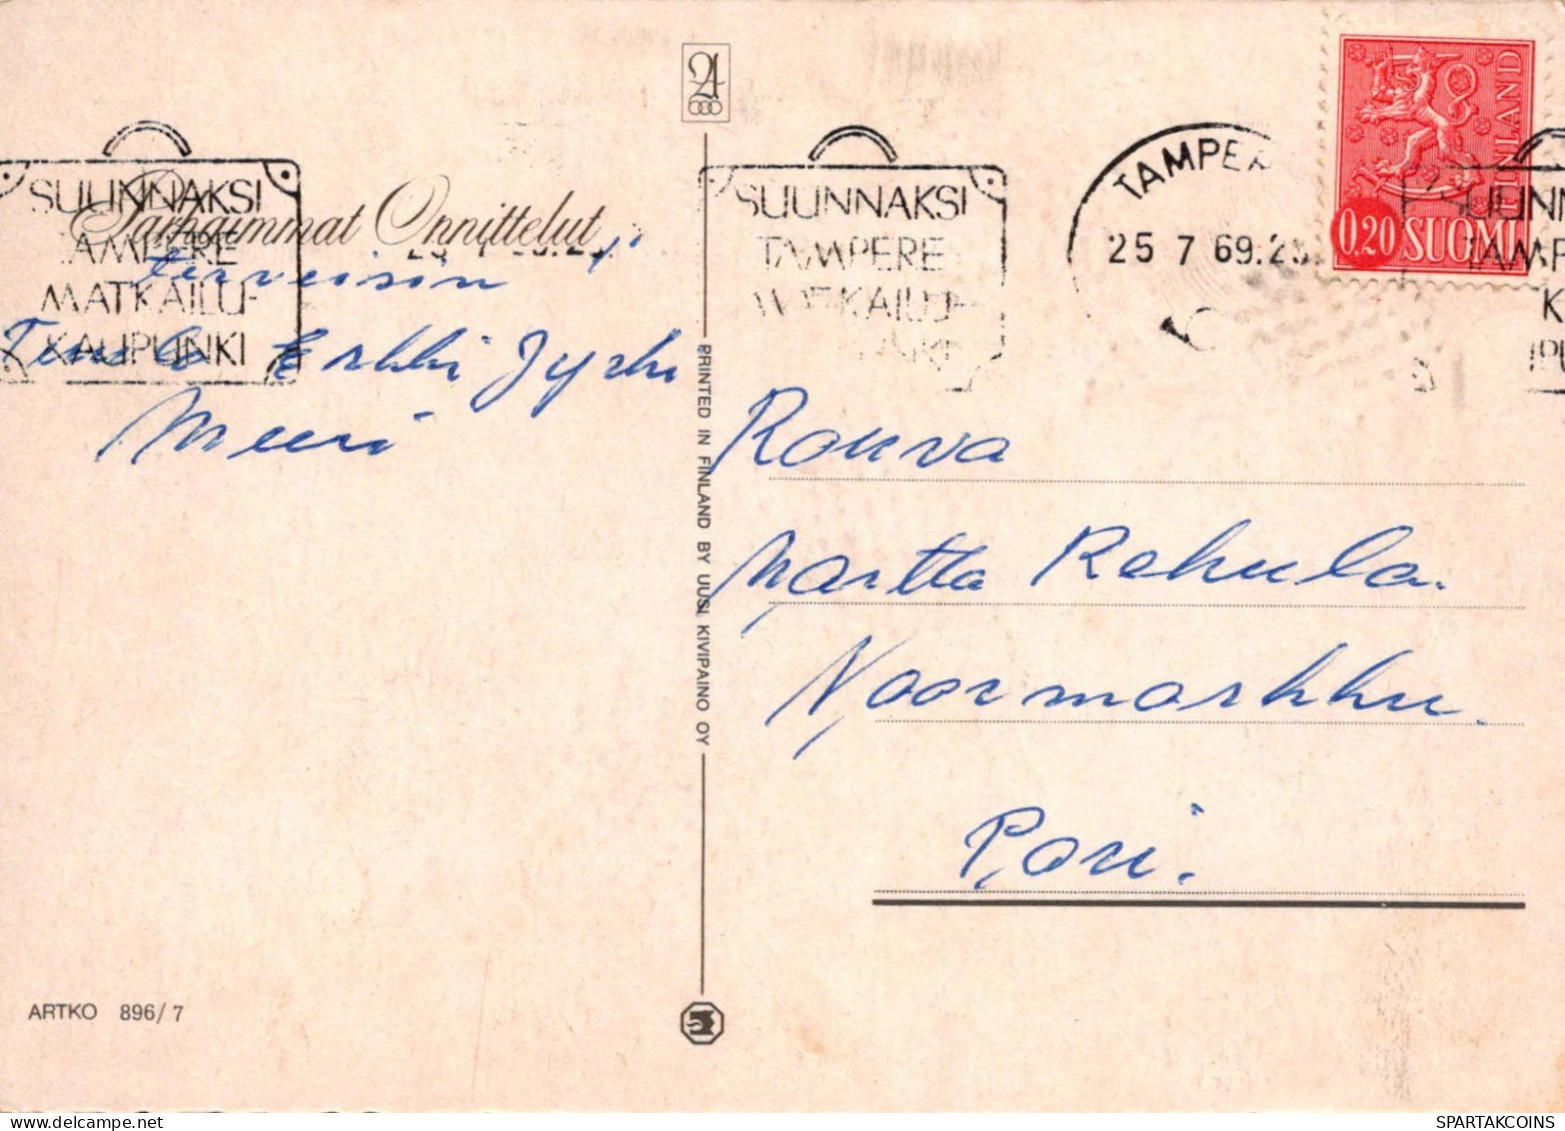 SUUNNAKSI
TAMPERE
MATKAILU-
KAUPUNKI
Parhaimmat Onnittelut
terveisin
Tuula Erkki Jyrki
Meeri
ARTKO 896/7
PRINTED IN FINLAND BY UUSI KIVIPAINO OY
SUUNNAKSI
TAMPERE
MATKAILU-
TAMPER
25 7 69.2
FINLAND
0,20 SUOMI
UUNN
TAMP
K
IPU
Rouva
Martta Rekula.
Noormarkku.
Pori.
SPARTAKCOINS